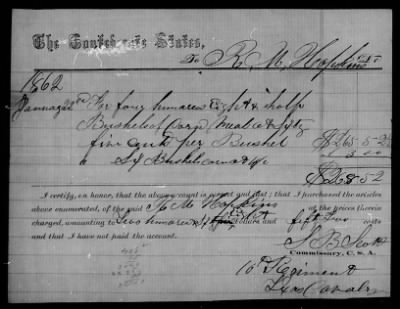 The Confederate States,
To R. M. Hopkins Dr
1862
January For four hundred & eight & half
Bushels of Corn Meal @ & fifty
five cents per Bushel $265.52
6 Bushels 3.00
$268.52
I certify, on honor, that the above account is correct and just; that I purchased the articles
above enumerated, of the said R M Hopkins at the prices therein
charged, amounting to Two hundred & Sixty Eight dollars and fifty Two cents
and that I have not paid the account.
S B Scott
Commissary, C. S. A.
10th Regiment
Texas Cavalry